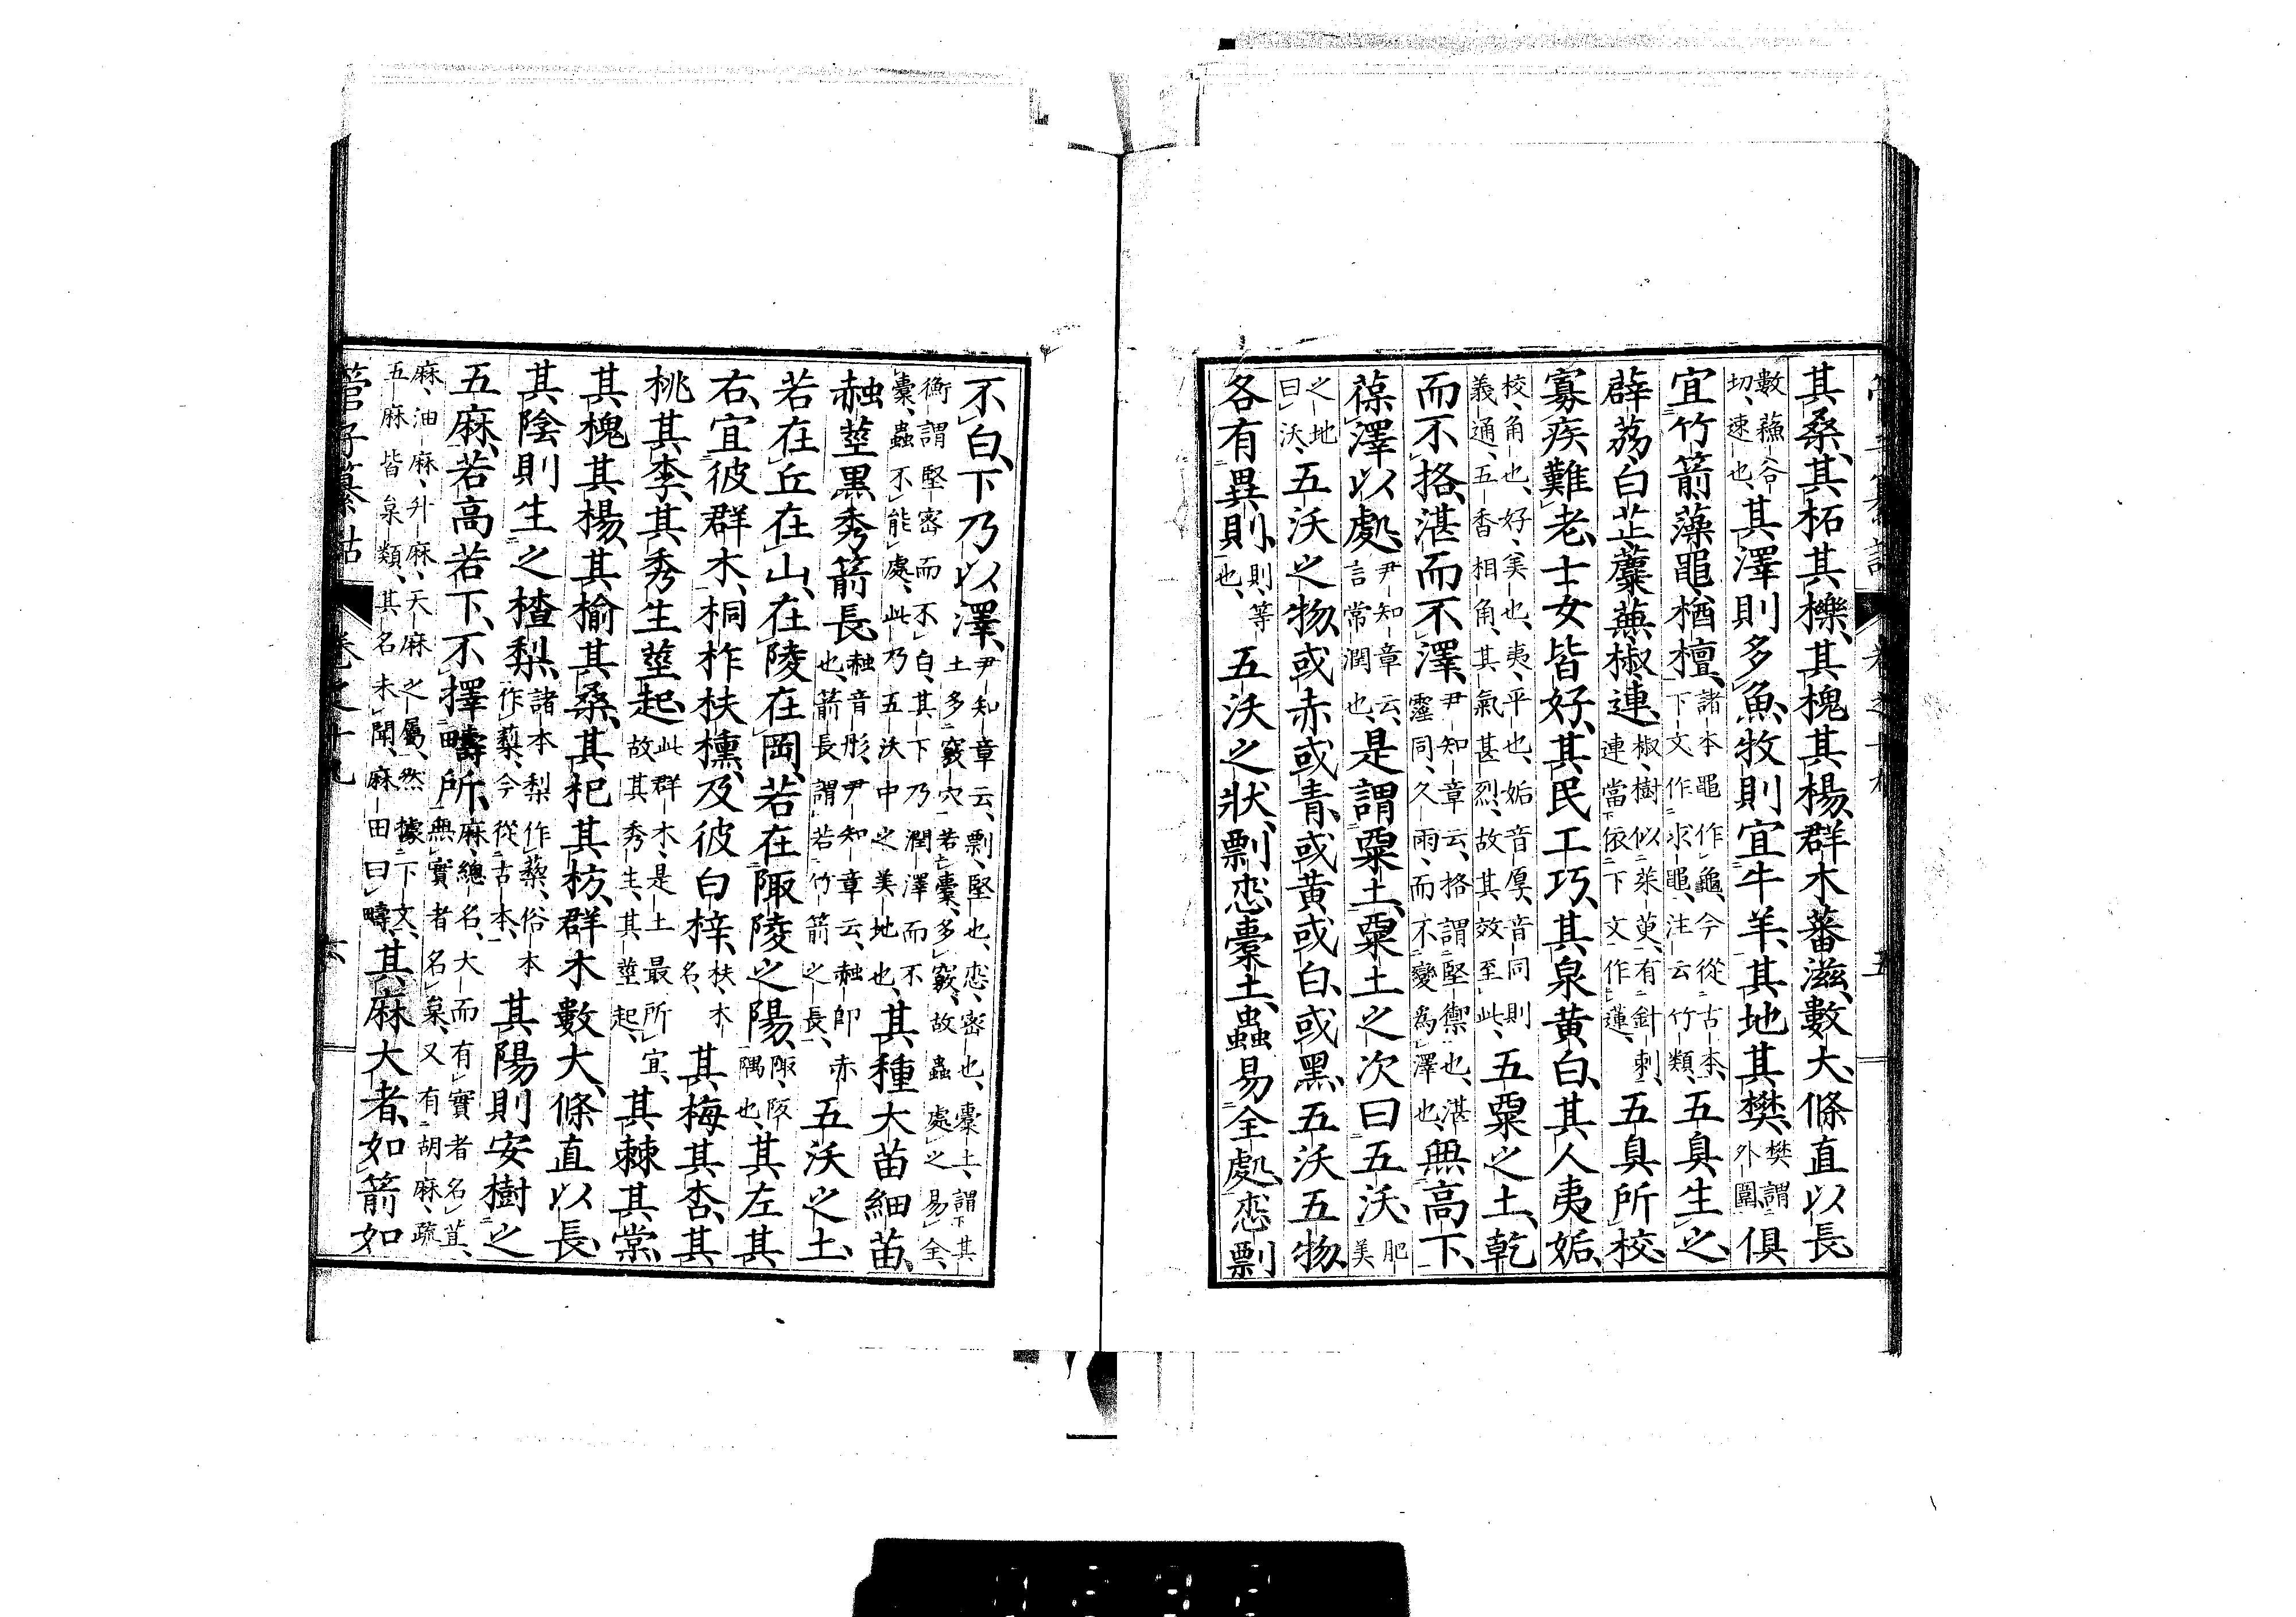 其桑、其柘其櫟、其槐其楊、群木蕃滋、數大、條直以長、
數蘓谷切、速也、其澤則多魚、牧則宜牛羊、其地其樊、樊謂外圍俱
宜竹箭藻黽、楢檀、諸本黽作龜、今從古本、下文作求黽、注云竹類、五臭生之、
薜荔、白芷蘪蕪、椒連、椒樹似茱萸、有針刺、連當依下文作蓮、五臭所校、
寡疾難老、士女皆好、其民工巧、其泉黃白、其人夷姤、
校、角也、好、美也、夷、平也、姤音厚、音同則義通、五香相角、其氣甚烈、故其效至此、五粟之土、乾
而不挌、湛而不澤、尹知章云、格謂堅禦也、湛霪同、久雨、而不變為澤也、無高下、
葆澤以處、尹知章云、言常潤也、是謂粟土、粟土之次曰五沃、肥美
之地曰沃、五沃之物、或赤或青、或黃或白、或黑、五沃五物、
各有異則、則等也、五沃之狀、剽怸橐土、蟲易全處、怸剽
不白、下乃以澤、尹知章云、剽、堅也、怸、密也、橐土、謂其土多竅穴、若橐、多竅、故蟲處之易全、
衡謂堅密而不白、其下乃潤澤而不橐、蟲不能處、此乃五沃中之美地也、其種大苗細苗、
赨莖黑秀箭長、赨音彤、尹知章云、赨卽赤也、箭長謂若竹箭之長、五沃之土、
若在丘在山、在陵在岡、若在陬陵之陽、陬、阪隅也、其左其
右、宜彼群木、桐柞扶櫄、及彼白梓、扶、木名、其梅其杏、其
桃其李、其秀生莖起、此群木是土最所宜、故其秀生、其莖起、其棘其棠、
其槐其楊、其榆其桑、其杞其枋、群木數大、條直以長、
其陰則生之楂梨、諸本梨作䔧、俗本作蔾、今從古本、其陽則安樹之
五麻、若高若下、不擇疇所、麻、總名、大而有實者名苴、無實者名枲、又有胡麻、疏
麻、油麻、升麻、天麻之屬、然據下文、五麻皆枲類、其名未聞、麻田曰疇、其麻大者、如箭如
管子纂詁 卷之十九